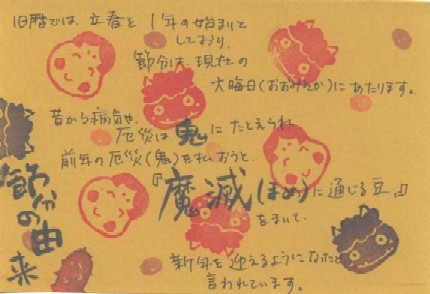 旧暦では、立春を1年の始まりと
しており、
節分は、現在の
大晦日(おおみそか)にあたります。
昔から病気や、
厄災は鬼にたとえられ
前年の厄災(鬼)を払おうと、
『魔滅(まめ)に通じる豆』
をまいて、
新年を迎えるようになったと
言われています。
節分の由来